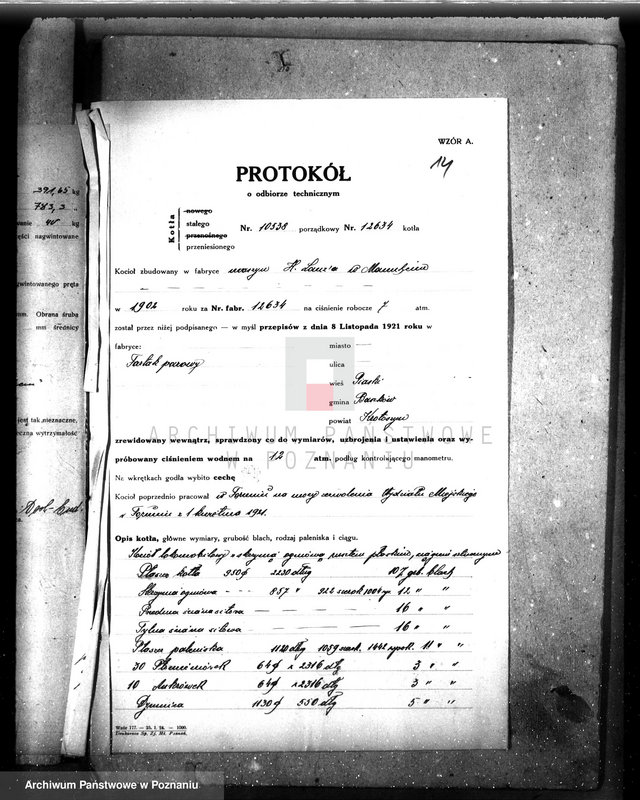 WZÓR A.
14
PROTOKÓŁ
o odbiorze technicznym
Kotła
nowego
stałego
przenośnego
przeniesionego
Nr. 10538 porządkowy Nr. 12634 kotła
Kocioł zbudowany w fabryce maszyn H. Lanz'a w Mannheim
w 1902 roku za Nr. fabr. 12634 na ciśnienie robocze 7 atm.
został przez niżej podpisanego — w myśl przepisów z dnia 8 Listopada 1921 roku w
fabryce:
miasto —
Tartak parowy
ulica —
wieś Piaski
gmina
powiat Krotoszyn
zrewidowany wewnątrz, sprawdzony co do wymiarów, uzbrojenia i ustawienia oraz wy-
próbowany ciśnieniem wodnem na 12 atm. podług kontrolującego manometru.
Na wkrętkach godła wybito cechę
Kocioł poprzednio pracował w Toruniu na mocy zezwolenia Wydziału Miejskiego
w Toruniu z 1 kwietnia 1921.
Opis kotła, główne wymiary, grubość blach, rodzaj paleniska i ciągu.
Kocioł lokomobilowy z skrzynią ogniową
Płaszcz kotła 950 ϕ 2230 dłg 10,7 grb. blach
Skrzynia ogniowa - - - 857 " 922 szerok 1004 12 " "
Przednia ściana sitowa — — — 16 " "
Tylna ściana sitowa — — — 16 " "
Płaszcz paleniska 1120 dłg 1059 szerok. 1642 wysok. 11 " "
30 Płomieniówek 64 ϕ x 2316 dłg 3 " "
10 Ankrówek 64 ϕ x 2316 dłg 3 " "
Dymnica 1130 ϕ 550 dłg 5 " "
Wzór 177. — 25. I. 24. — 1000.
Drukarnia Sp. Zj. Mł. Poznań.
391,65 kg
783,3 "
40 kg
ęści nagwintowane
gwintowanego pręta
m. Obrana śruba
mm średnicy
jest tak nieznaczne,
eczna wytrzymałość
ARCHIWUM PAŃSTWOWE
W POZNANIU
Archiwum Państwowe w Poznaniu